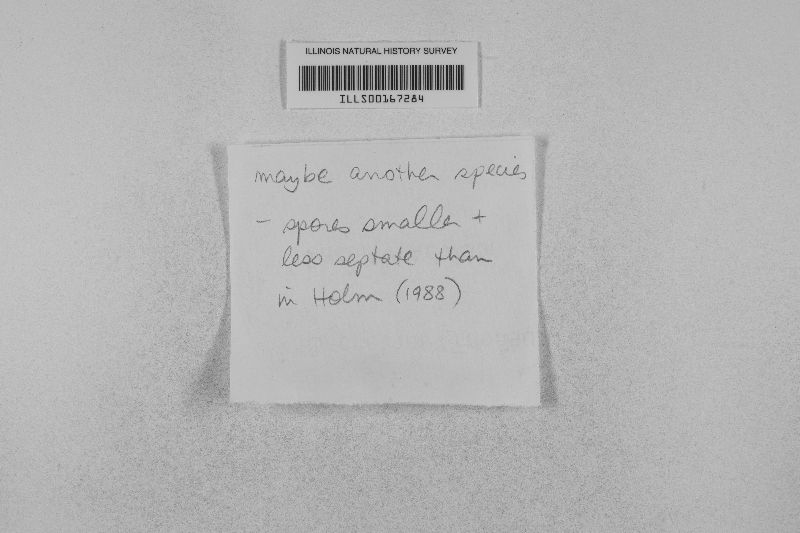 ILLINOIS NATURAL HISTORY SURVEY
ILLS00167284
maybe another species
- spores smaller +
less septate than
in Holm (1988)